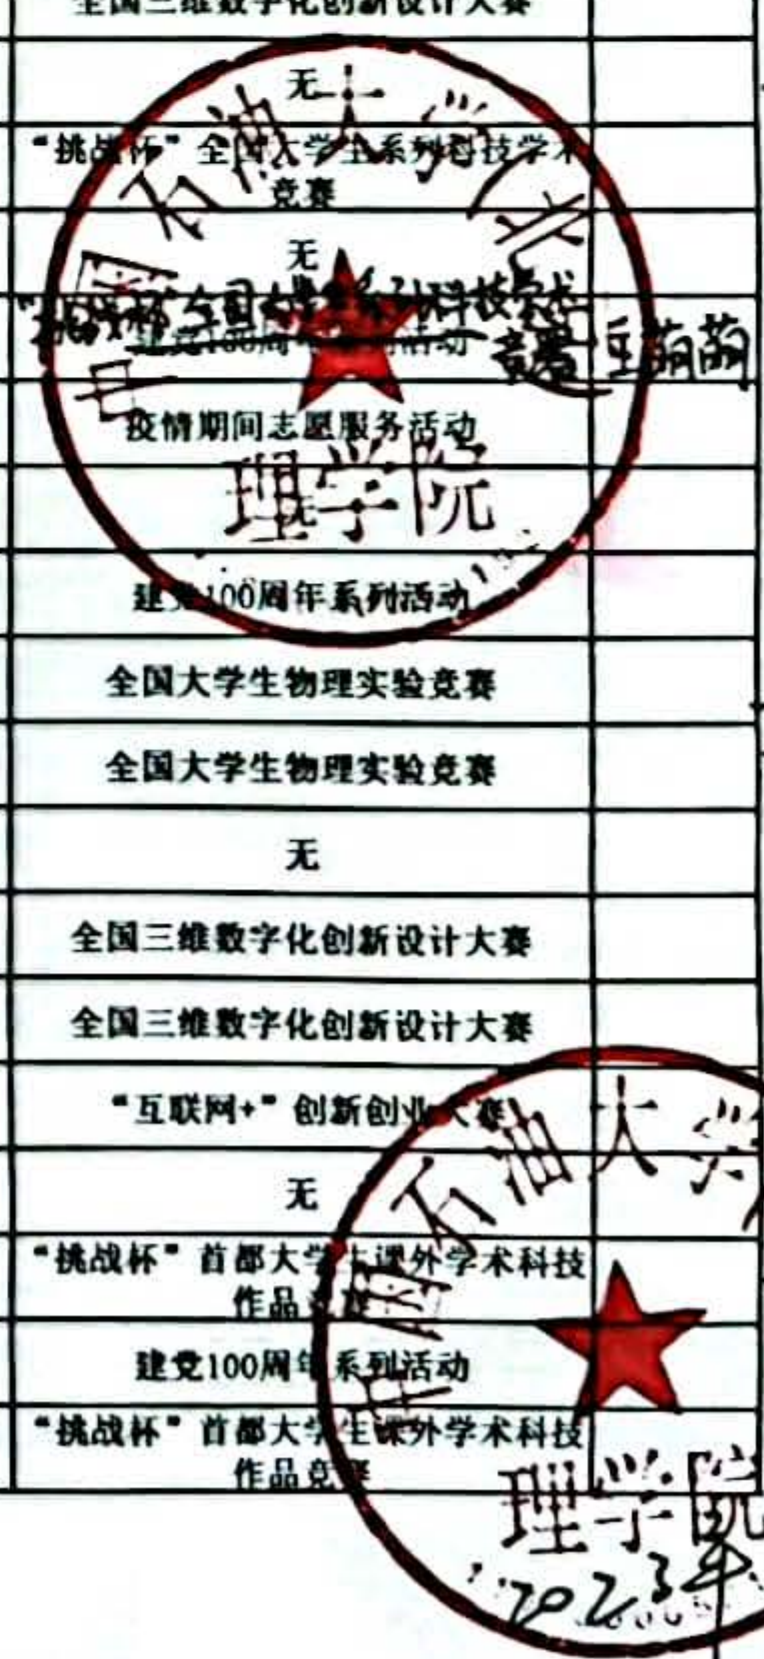 全国三维数字化创新设计大赛
无
“挑战杯”全国大学生系列科技学术
竞赛
无
“挑战杯”全国大学生系列科技学术
竞赛 豆萌萌
建党100周年系列活动
疫情期间志愿服务活动
无
建党100周年系列活动
全国大学生物理实验竞赛
全国大学生物理实验竞赛
无
全国三维数字化创新设计大赛
全国三维数字化创新设计大赛
“互联网+”创新创业大赛
无
“挑战杯”首都大学生课外学术科技
作品竞赛
建党100周年系列活动
“挑战杯”首都大学生课外学术科技
作品竞赛
中国石油大学(北
理学院
中国石油大学
理学院
2023年